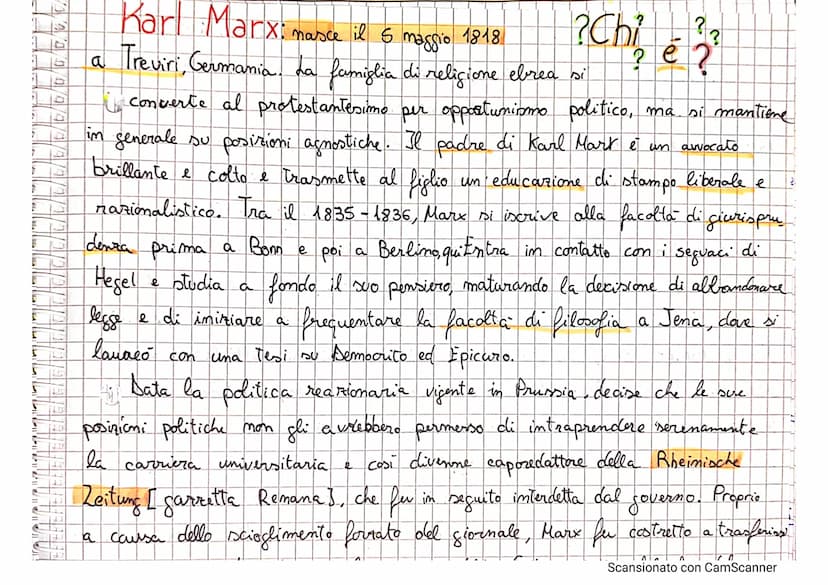 Karl Marx: nasce il 5 maggio 1818 ?Chi? ? é ???
a Treviri, Germania. La famiglia di religione ebrea si
converte al protestantesimo per opportunismo politico, ma si mantiene
in generale su posizioni agnostiche. Il padre di Karl Marx é un avvocato
brillante e colto e trasmette al figlio un'educazione di stampo liberale e
razionalistico. Tra il 1835-1836, Marx si iscrive alla facoltá di giurispru_
denza prima a Bonn e poi a Berlino, qui Entra in contatto con i seguaci di
Hegel e studia a fondo il suo pensiero, maturando la decisione di abbandonare
legge e di iniziare a frequentare la facoltá di filosofia a Jena, dove si
laureó con una Tesi su Democrito ed Epicuro.
Data la politica reazionaria vigente in Prussia, decise che le sue
posizioni politiche non gli avrebbero permesso di intraprendere serenamente
la carriera universitaria e cosí divenne caporedattore della Rheinische
Zeitung [gazzetta Renana], che fu in seguito interdetta dal governo. Proprio
a causa dello scioglimento forzato del giornale, Marx fu costretto a trasferirsi
Scansionato con CamScanner